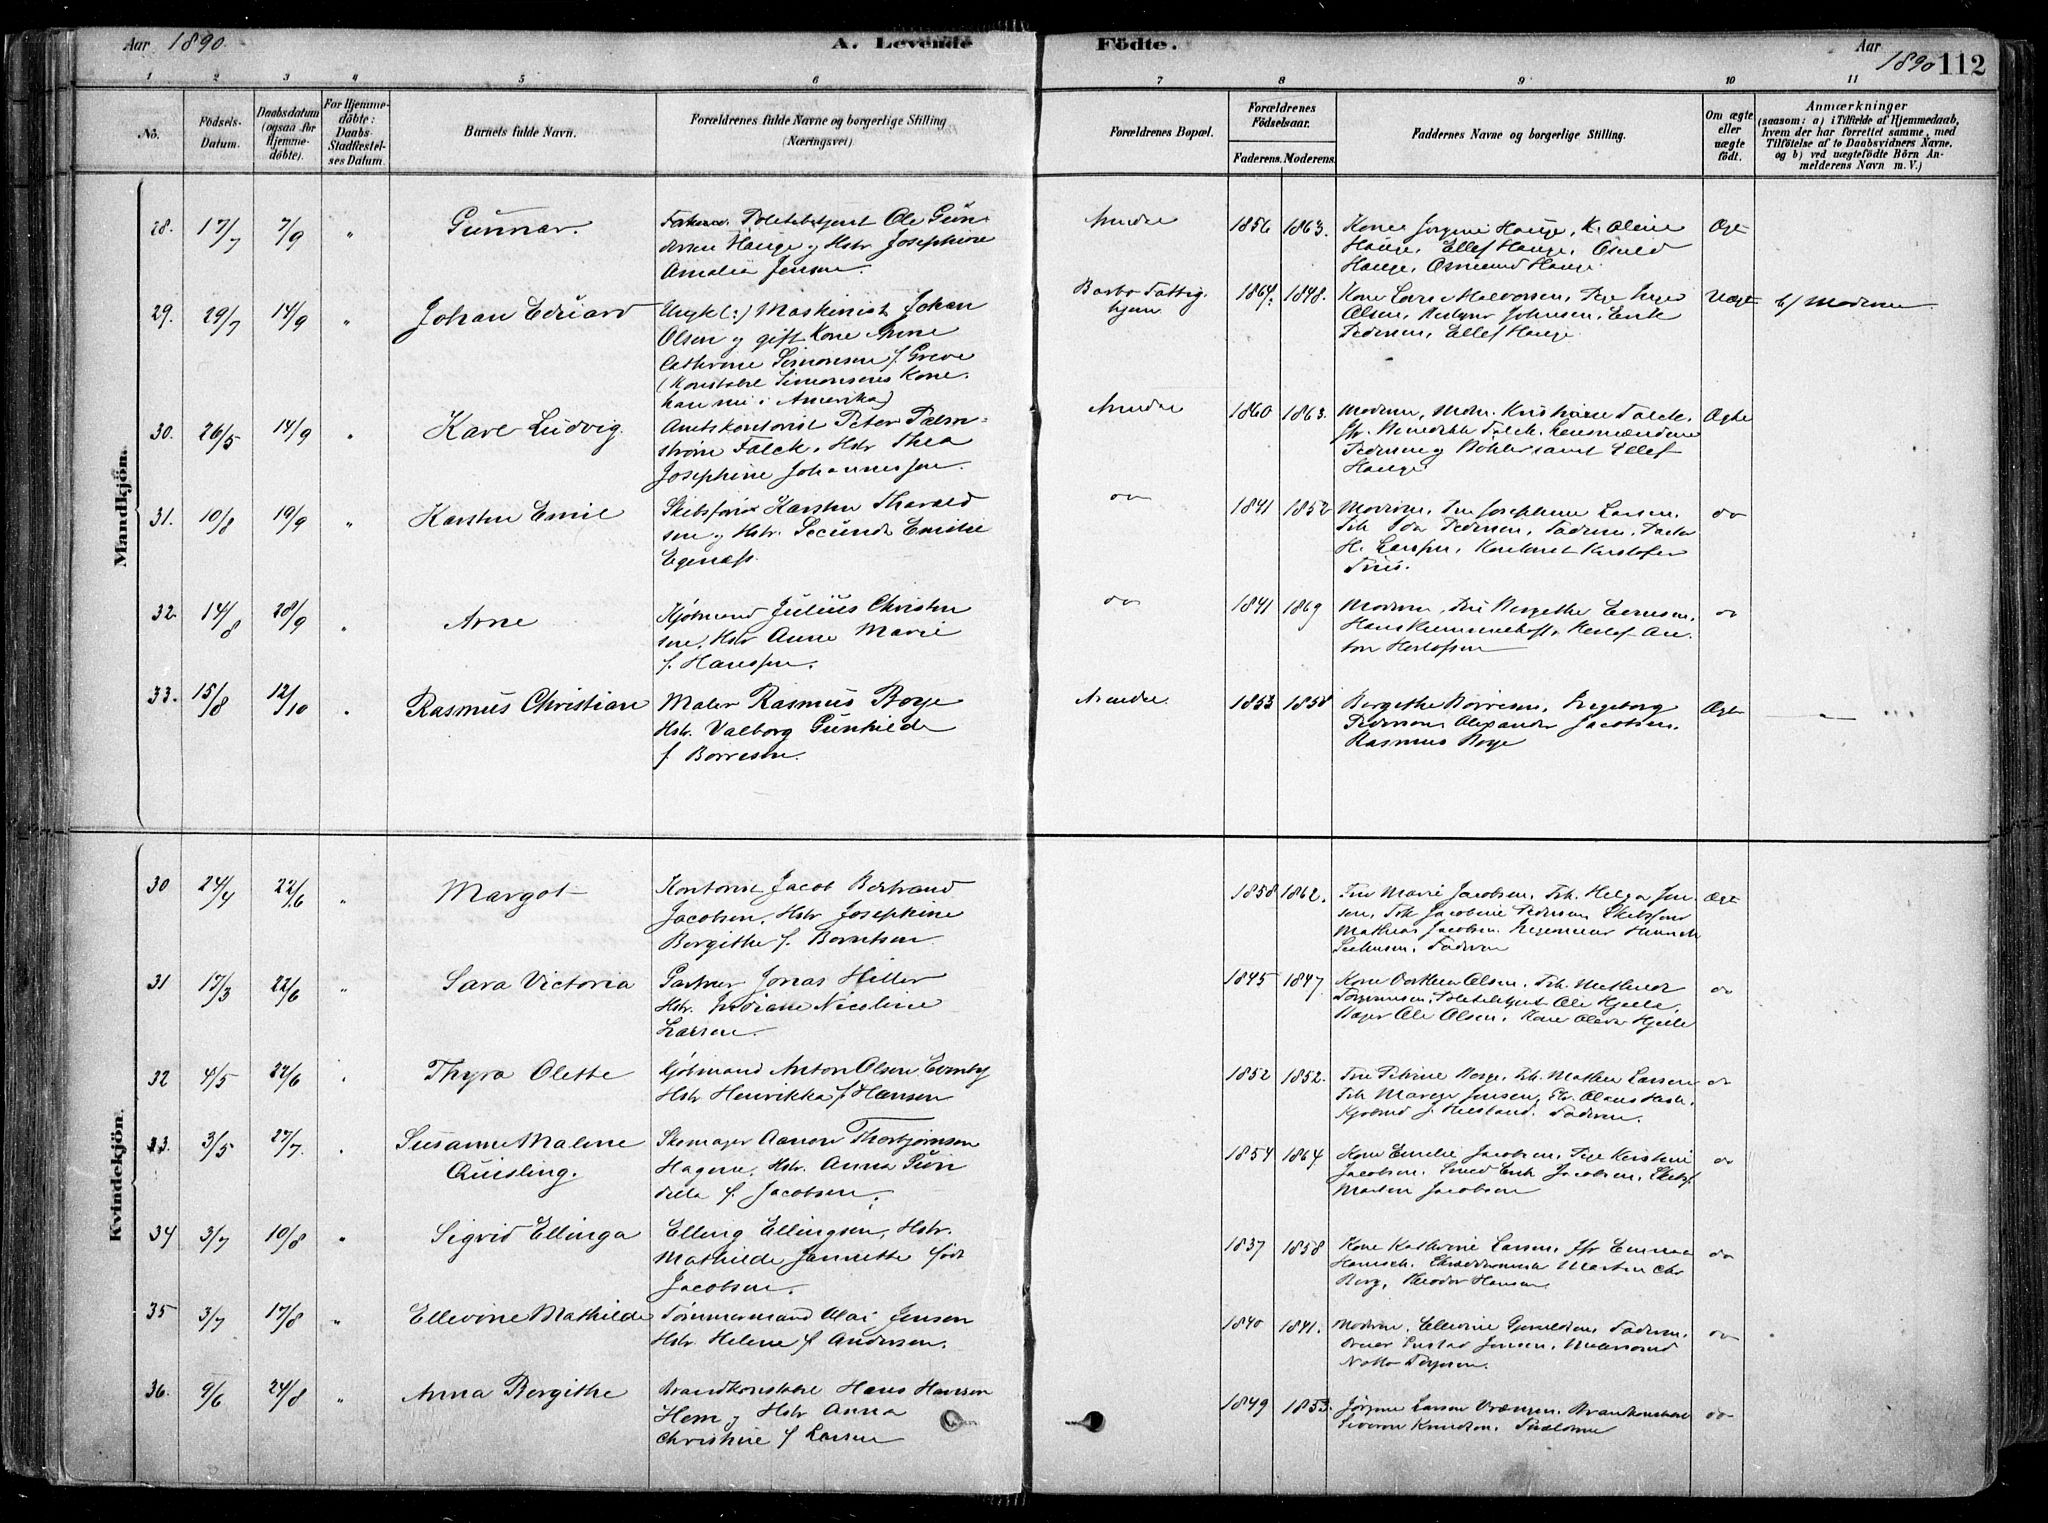 Aar 1890.
A. Levende Födte.
Aar 1890 112
1 2 3 4 5 6 7 8 9 10 11
No.
Födsels-Datum.
Daabsdatum (ogsaa for Hjemme-döbte).
For Hjemme-döbte: Daabs-Stadfæstel-ses Datum.
Barnets fulde Navn.
Forældrenes fulde Navne og borgerlige Stilling
(Næringsvei).
Forældrenes Bopæl.
Forældrenes Födselsaar.
Faderens. Moderens.
Faddernes Navne og borgerlige Stilling.
Om ægte eller uægte födt.
Anmærkninger
(saasom: a) i Tilfælde af Hjemmedaab,
hvem der har forrettet samme, med
Tilföielse af to Daabsvidners Navne.
og b) ved uægtefödte Börn An-
melderens Navn m. V.)
Mandkjön.
28. 17/7 7/9 " Gunnar.
Politibetjent Ole Gun
dersen Hauge og Hstr Josephine
Amalia Jensen.
Arendal 1856 1863.
Kone Jorgine Hauge, K. Oline
Hauge, Ellef Hauge, Osuld
Hauge, Osmund Hauge.
Ægt
29. 29/7 14/9 " Johan Eduard
Ungk(:) Maskinist Johan
Olsen og gift Kone Anne
Cathrine Simonsen f. Greve
(Konstabel Simonsens Kone.
han nu i Amerika)
Barbo Fattig
hjem 1864. 1848.
Kone Halvorsen, Pige Inga
Olsen, Johnsen, Erik
Pedersen, Ellef Hauge
Uægt b/ Moderen
30. 26/5 14/9 " Karl Ludvig.
Amtskontorist Peter Palm-
strøm Falck, Hstr Thea
Josephine Johannessen.
Arendal 1860 1863.
Moderen, Mdm. Kristiane Falck.
Jfr. Benedikte Falck. Lensmændene
Pedersen og Böhler samt Ellef
Hauge
Ægte
31. 10/8 19/9 " Karsten Emil
Skibsfører Karsten Tharald
sen og Hstr. Secunda Emilie
Egenæss.
do 1841 1852
Moderen, Fru Josephine Larsen,
Frk Ida Pedersen, Faderen,
H. Larssen, Kristofer
do
32. 14/8 28/9 " Arne
Kjøbmand Julius Christen
sen, Hstr Anne Marie
f. Hanssen.
do 1841 1869
Moderen, Fru Bergithe Evensen,
Hans Herlof An-
ton Herlofsen
do
33. 15/8 12/10 " Rasmus Christian
Maler Rasmus Boye
Hstr. Valborg Gunhilde
f. Börresen.
Arendal. 1853 1858
Bergithe Börresen, Ingeborg
Pederson, Alexander Jacobsen.
Rasmus Boye
Ægt
Kvindekjön.
30 24/4 22/6 " Margot
Kontorist Jacob Bertrand
Jacobsen, Hstr Josephine
Bergithe f. Berntsen.
1858 1862.
Fru Marie Jacobsen, Frk. Helga Jen
sen, Frk Jacobine Pedersen, Skibsfører
Mathias Jacobsen, Ingenieur Henrik
Faderen
Ægt
31 17/3 22/6 " Sara Victoria
Gartner Jonas Hiller
Hstr. Indiane Nicoline
Larsen.
1845 1847.
Kone Olsen, Frk. Mathilde
Torjussen, Politibetjent Ole Hjelle,
Bager Ole Olsen, Kone Oleva Hjelle
do
32 4/5 22/6 " Thyra Olette
Kjøbmand Anton Olsen Evenby
Hstr Henrikka f Hansen
1852 1852.
Fru Petrine Borge, Frk. Mathea Larsen
Frk Marge Jensen,
Kjøbmd J. Faderen.
do
33. 3/5 27/7. " Susanne Maline
Quisling.
Skomager Aanon Thorbjørnsen
Hagene, Hstr. Anna Gun
della f. Jacobsen.
1854 1864
Kone Emelie Jacobsen, Pige Kristine
Jacobsen, Smed Erik Jacobsen,
Martin Jacobsen
do
34 3/7 10/8 " Sigrid Ellinga
Elling Ellingsen, Hstr.
Mathilde Jannette föd
Jacobsen.
1837 1858
Kone Kathrine Larsen, Jfr Emma
Martin Chr
Berg, Theodor Hansen
do
35 3/7 17/8 " Ellevine Mathilde
Tømmermand Olai Jensen
Hstr Helene f Andersen.
1840 1841.
Moderen, Ellevine Faderen.
Gustav Jensen,
do
36. 9/6 24/8 " Anna Bergithe
Brandkonstabel Hans Hansen
Hem og Hstr Anna
Christine f Larsen
1849 1853.
Jørgine Larsen Brandkonstabel
Severin Knudsen,
do